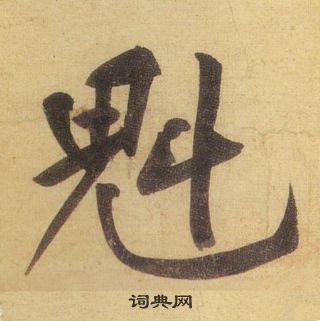 魁
词典网